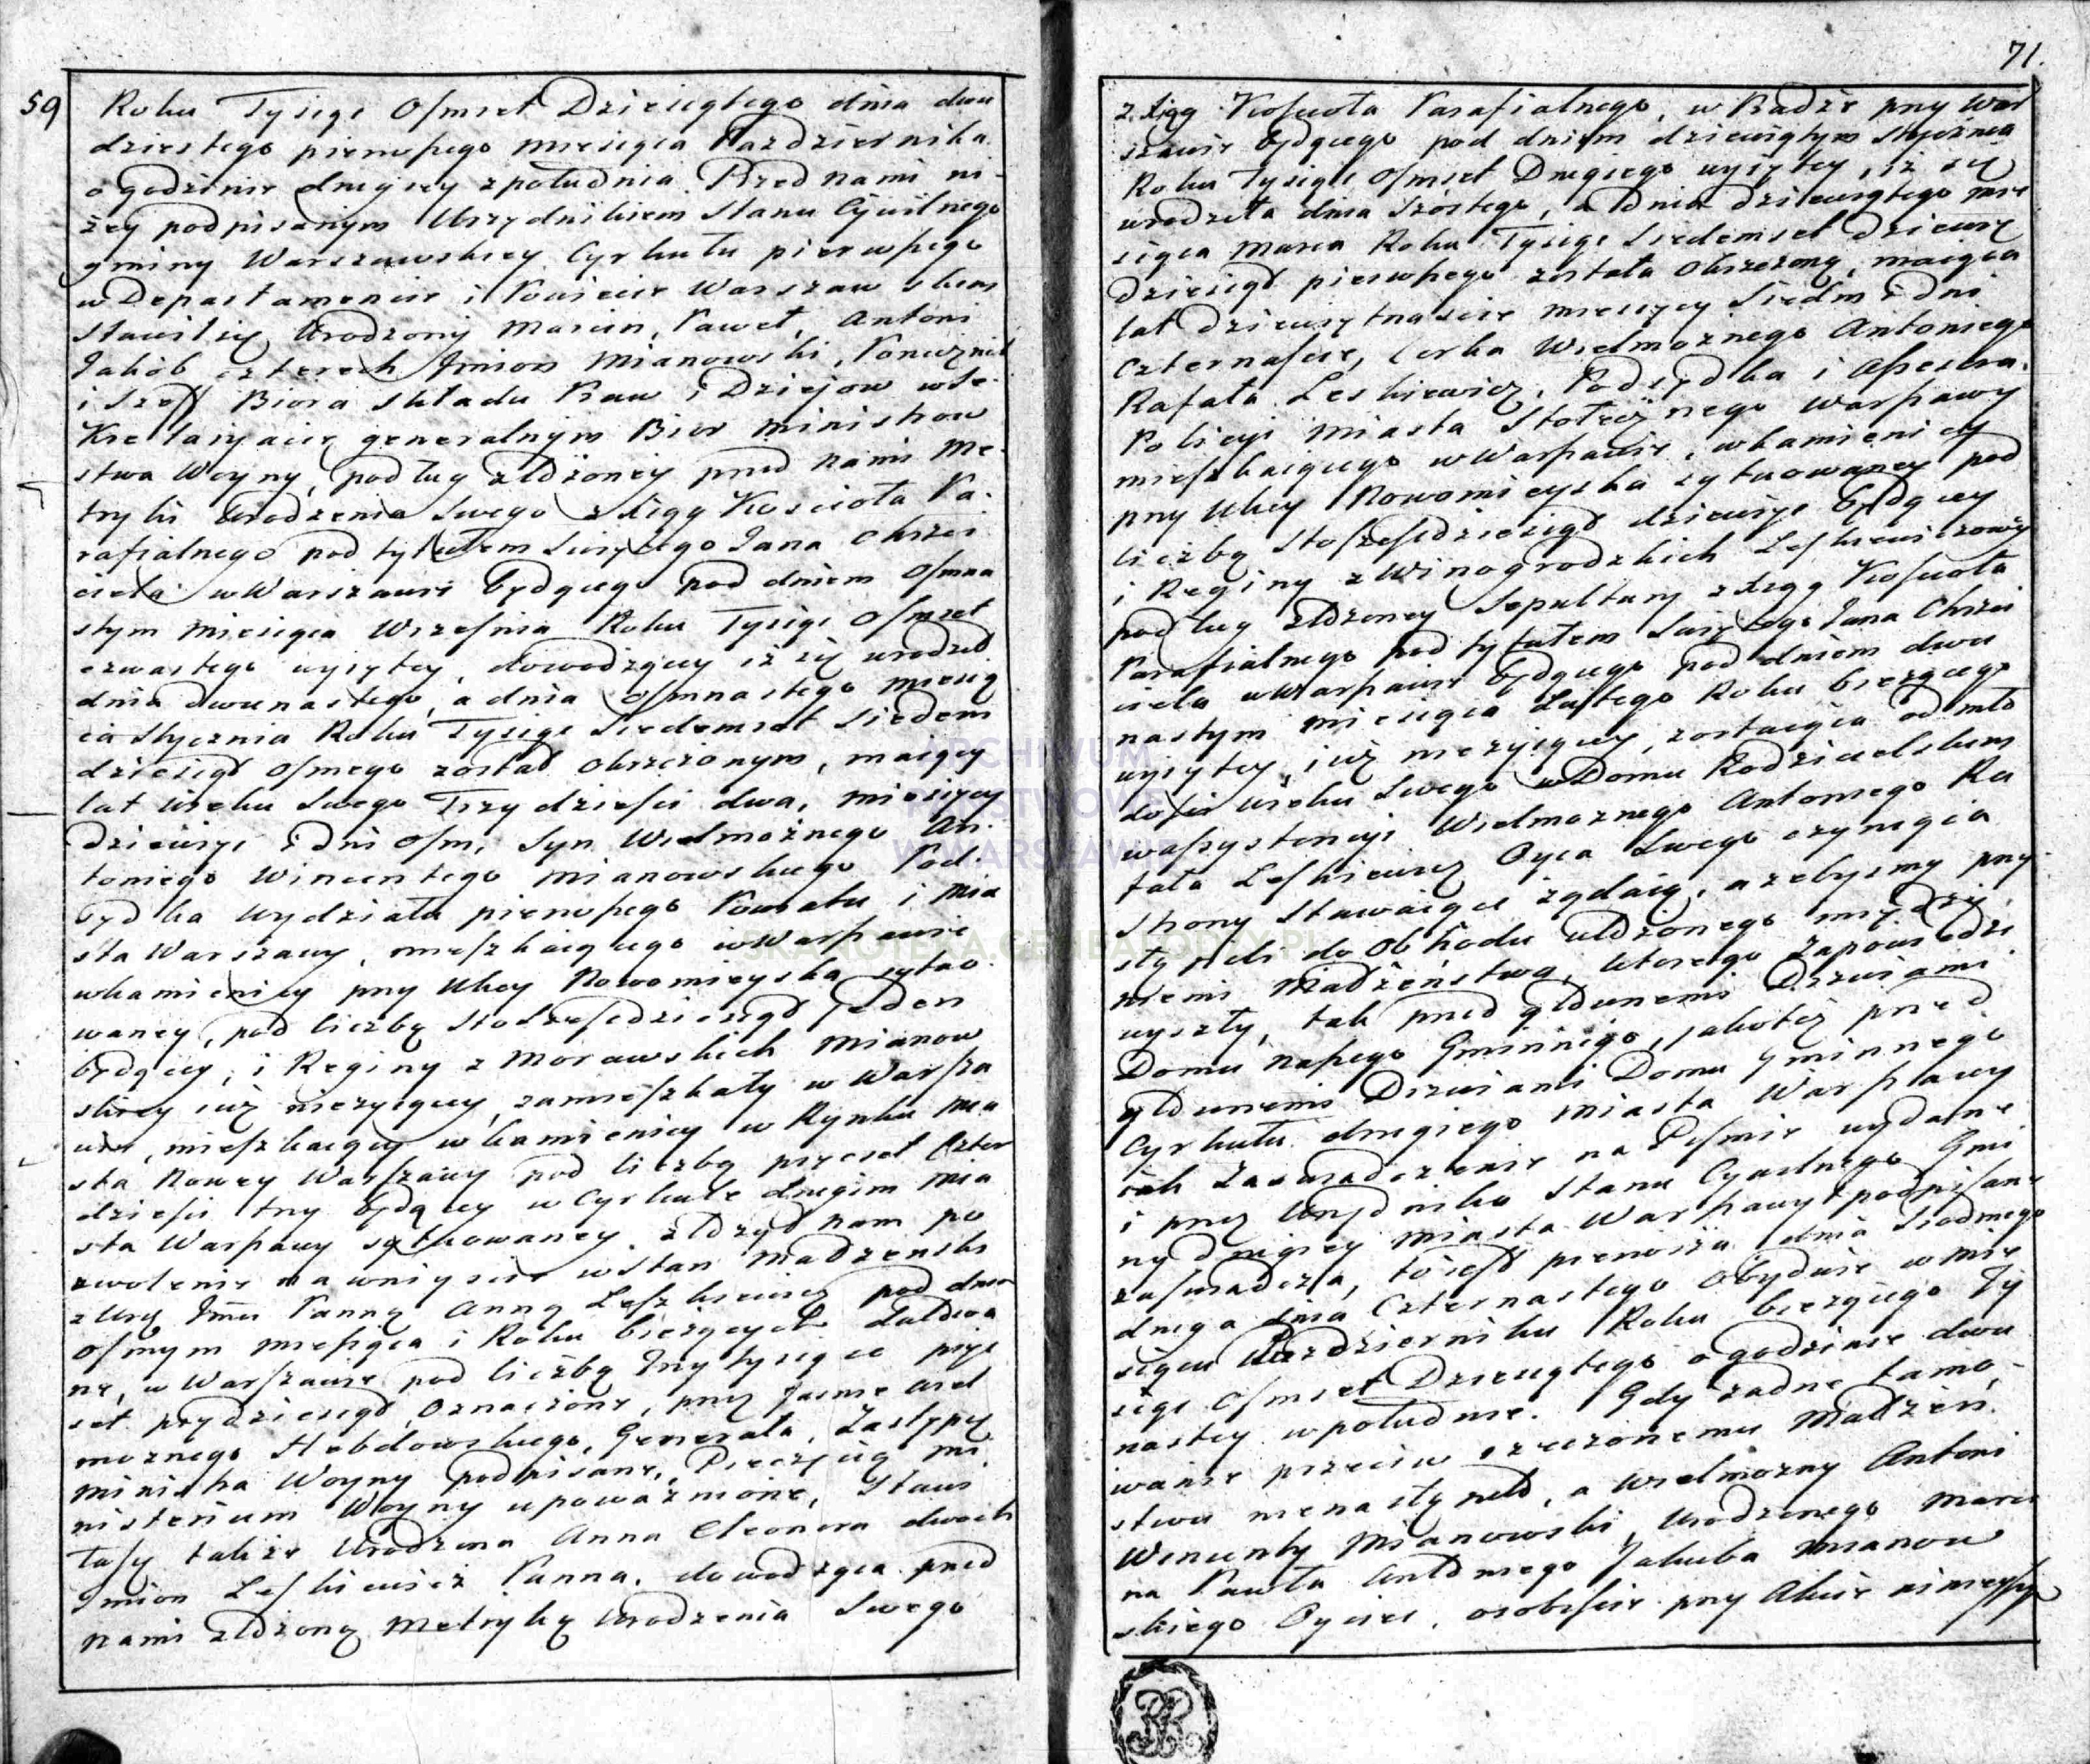 71.
59
Roku Tysiąc Osmset Dziesiątego dnia dwu
dziestego pierwszego miesiąca Pazdziernika
o godzinie drugiey z południa. Przed nami ni-
żey podpisanym Urzędnikiem Stanu Cywilnego
gminy Warszawskiey Cyrkułu pierwszego
w Departamencie i Powiecie Warszawskim
stawił się Urodzony Marcin, Paweł, Antoni
Jakób czterech Imion Mianowski, Porucznik
i Szeff Biora składu Praw i Dziejow w Se-
kretaryacie generalnym Biór Ministrow
stwa Woyny, podług złożoney przed nami Me-
tryki Urodzenia Swego z Xiąg Kościoła Pa-
rafialnego pod tytułem Swiętego Jana Chrzci
ciela w Warszawie będącego pod dniem Osmna
stym Miesiąca Wrzesnia Roku Tysiąc Osmset
czwartego wyiętey, dowodzący iż się urodził
dnia dwunastego, a dnia osmnastego miesią
ca Stycznia Roku Tysiąc Siedemset Siedem
dziesiąt osmego został Chrzczonym, maiący
lat wieku Swego Trzydzieści dwa, miesięcy
dziewięć i dni osm, Syn Wielmożnego An-
toniego Wincentego Mianowskiego Pod-
sędka Wydziału pierwszego Powiatu i Mia
sta Warszawy, mieszkaiącego w Warszawie
w kamienicy przy Ulicy Nowomieyska sytuo-
waney, pod liczbą Sto Sześćdziesiąt Jeden
będącey, i Reginy z Morawskich Mianow
skiey iuż nieżyiącey, zamieszkały w Warsza
wie, mieszkaiący w kamienicy w Rynku Mia
sta Nowey Warszawy pod liczbą pięćset Czter
dzieści trzy będący w Cyrkule drugim Mia
sta Warszawy sytuowaney złożył nam po
zwolenie na wniyscie w Stan Małżenski
z Urź Imci Panną Anną Leszkiewicz pod dniem
osmym miesiąca i Roku bieżących datowa
ne, w Warszawie pod liczbą Trzy tysiące pięć
set pięćdziesiąt, oznaczone, przez Jasnie Wiel
możnego Hebdowskiego, Generała, Zastępcę
Ministra Woyny podpisane, Pieczęcią Mi
nisterium Woyny upoważnione, Stawi
łasy także Urodzona Anna Eleonora dwoch
Imion Leszkiewicz Panna, dowodząca przed
Nami złożoną Metryką Urodzenia Swego
z Xiąg Kościoła Parafialnego, w Babże przy War
szawie będącego pod dniem dziewiątym Stycznia
Roku Tysiąc Osmset Drugiego wyiętey, iż się
urodziła dnia Szóstego, a dnia dziewiątego mie
siąca Marca Roku Tysiąc Siedemset Dziewięć
dziesiąt pierwszego została Chrzczoną, maiąca
lat dziewiętnaście miesięcy Siedm i dni
czternaście, Corka Wielmożnego Antoniego
Rafała Leskiewicz, Podsędka i Assessora
Policyi Miasta Stołecznego Warszawy
mieszkaiącego w Warszawie, w kamienicy
przy Ulicy Nowomieyska sytuowaney pod
liczbą Sto sześćdziesiąt dziewięć będącey
i Reginy z Winogrodzkich Leszkiewiczowey
podług złożoney Sepultury z Xiąg Kościoła
Parafialnego pod tytułem Swiętego Jana Chrzci
ciela w Warszawie będącego pod dniem dwu
nastym miesiąca Lutego Roku bieżącego
wyiętey, iuż nieżyiącey, zostaiąca od mło
dości wieku Swego w Domu Rodzicielskim
w assystencyi Wielmożnego Antoniego Ra
fała Leszkiewicz Oyca Swego czyniąca
Strony Stawaiące żądaią, ażebysmy przy
stąpili do Obchodu ułożonego między
niemi Małżeństwa, którego zapowiedzi
wyszły, tak przed głównemi Drzwiami
Domu Naszego Gminnego, jakoteż przed
głównemi Drzwiami Domu Gminnego
Cyrkułu drugiego Miasta Warszawy
iak Zaswiadczenie na Pismie wydane
i przez Urzędnika Stanu Cywilnego Gmi
ny drugiey Miasta Warszawy podpisane
zaswiadcza, to iest pierwsza dnia Siodmego
druga dnia Czternastego Obydwie w mie
siącu Pazdzierniku Roku bieżącego Ty
siąc Osmset Dziesiątego o godzinie dwu
nastey w południe. Gdy żadne tamo-
wanie przeciw rzeczonemu Małżeń-
stwu nienastąpiło, a Wielmożny Antoni
Wincenty Mianowski, Urodzonego Marci
na Pawła Antoniego Jakuba Mianow
skiego Oyciec, osobiście przy Akcie ninieyszym
ARCHIWUM
PAŃSTWOWE
W WARSZAWIE
SKANOTEKA.GENEALODZY.PL